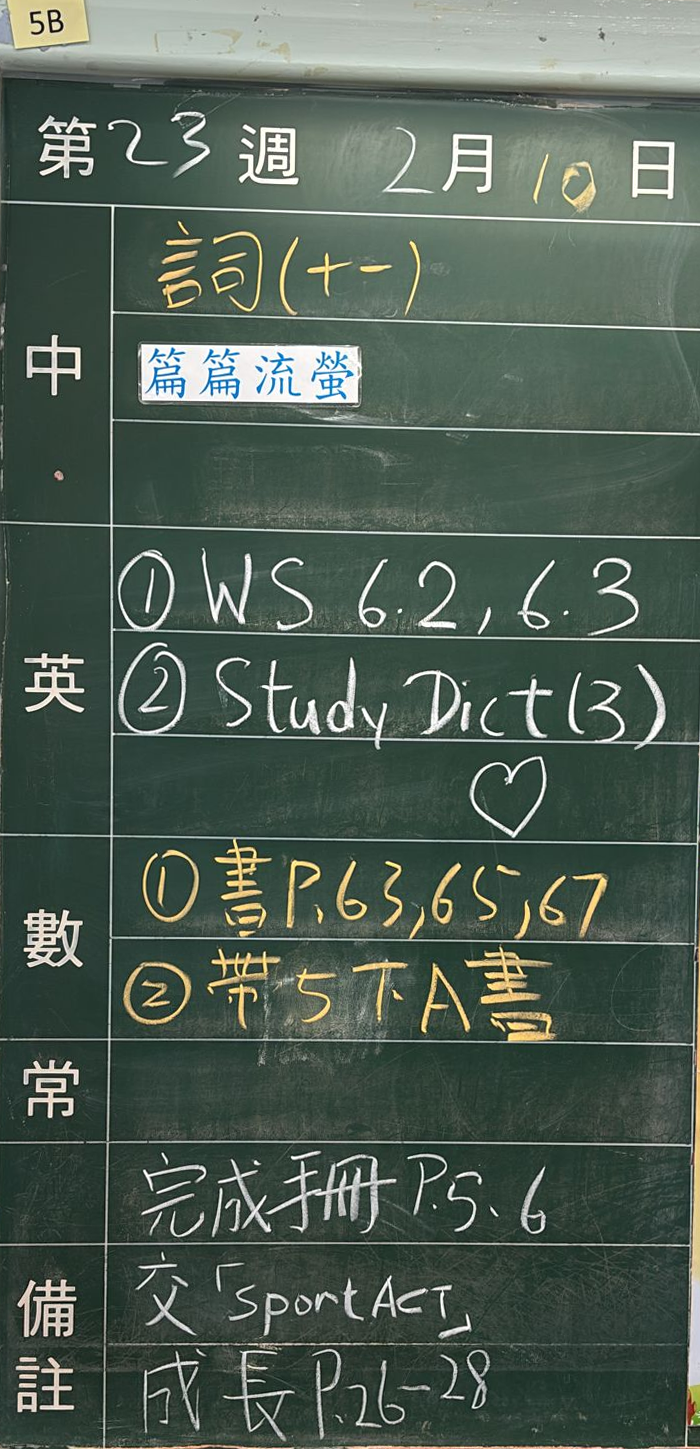 5B
第23週 2月10日
中
詞(十一)
篇篇流螢
英
① WS 6.2, 6.3
② Study Dict(3)
數
① 書P.63,65,67
② 帶5下A書
常
完成手冊P.5、6
備註
交「SportACT」
成長P.26-28